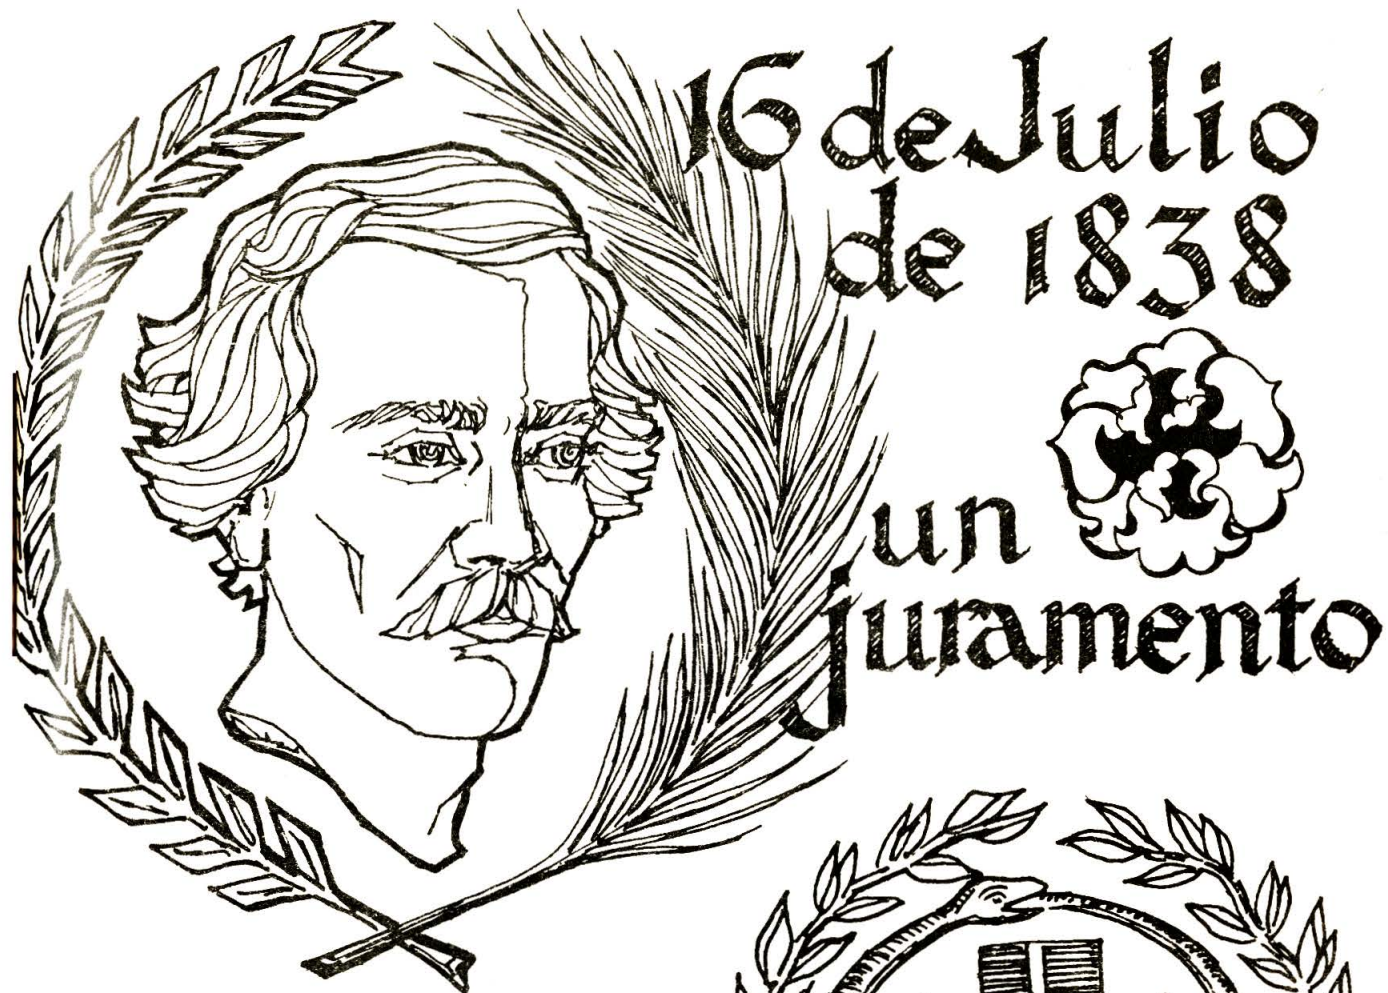 16 de Julio
de 1838
un
juramento